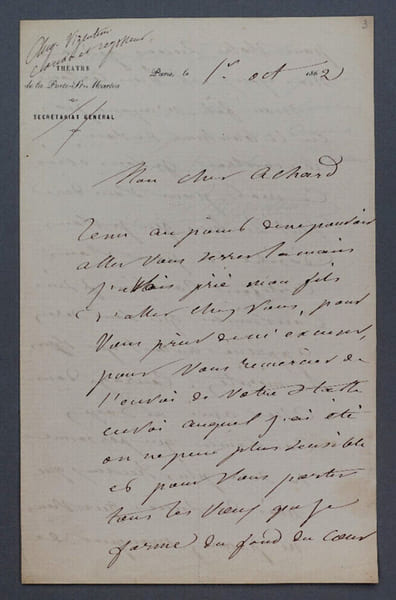 3
Aug. Vizentini
THÉATRE
de la Porte-St-Martin
SECRÉTARIAT GÉNÉRAL
Paris, le 1er oct 1862
Mon cher Achard
Tenu au point de ne pouvoir
aller vous serrer la main
j'avais prié mon fils
d'aller chez vous, pour
vous prier de m'excuser,
pour vous remercier de
l'envoi de votre
envoi auquel j'ai été
on ne peut plus sensible
et pour vous porter
tous les vœux que je
forme du fond du cœur